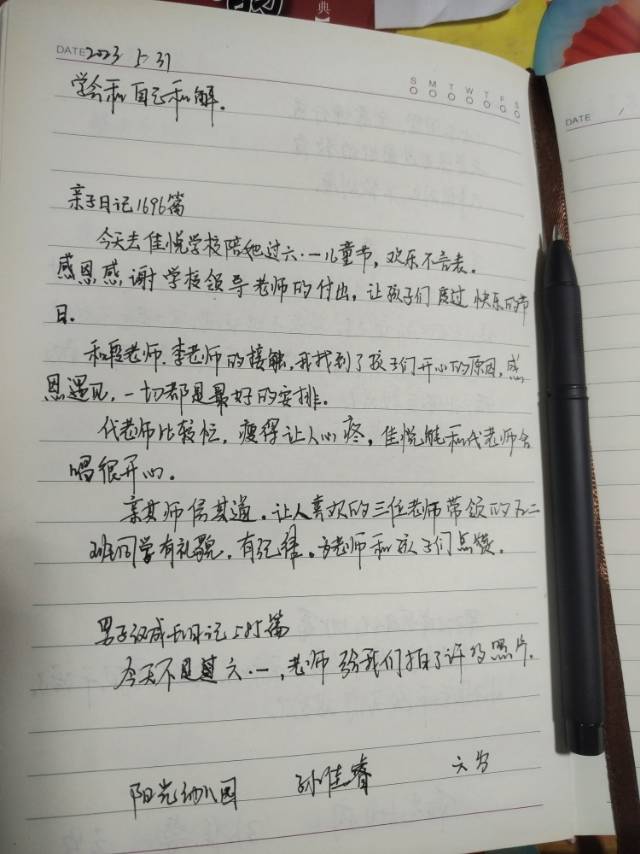 典】
DATE 2023 5 31
S M T W T F S
学会和自己和解.
DATE /
亲子日记1696篇
今天去佳悦学校陪她过六·一儿童节,欢乐不言表.
感恩感谢学校领导老师的付出,让孩子们度过快乐的节
日.
和老师.李老师的接触,我找到了孩子们开心的原因,感
恩遇见,一切都是最好的安排.
代老师比较忙,瘦得让人心疼,佳悦能和代老师合
唱很开心.
亲其师信其道.让人喜欢的三位老师带领的五二
班同学有礼貌,有纪律.为老师和孩子们点赞.
男子汉成长日记585篇
今天不是六·一,老师给我们拍了许多照片.
阳光幼儿园 孙佳睿 六岁